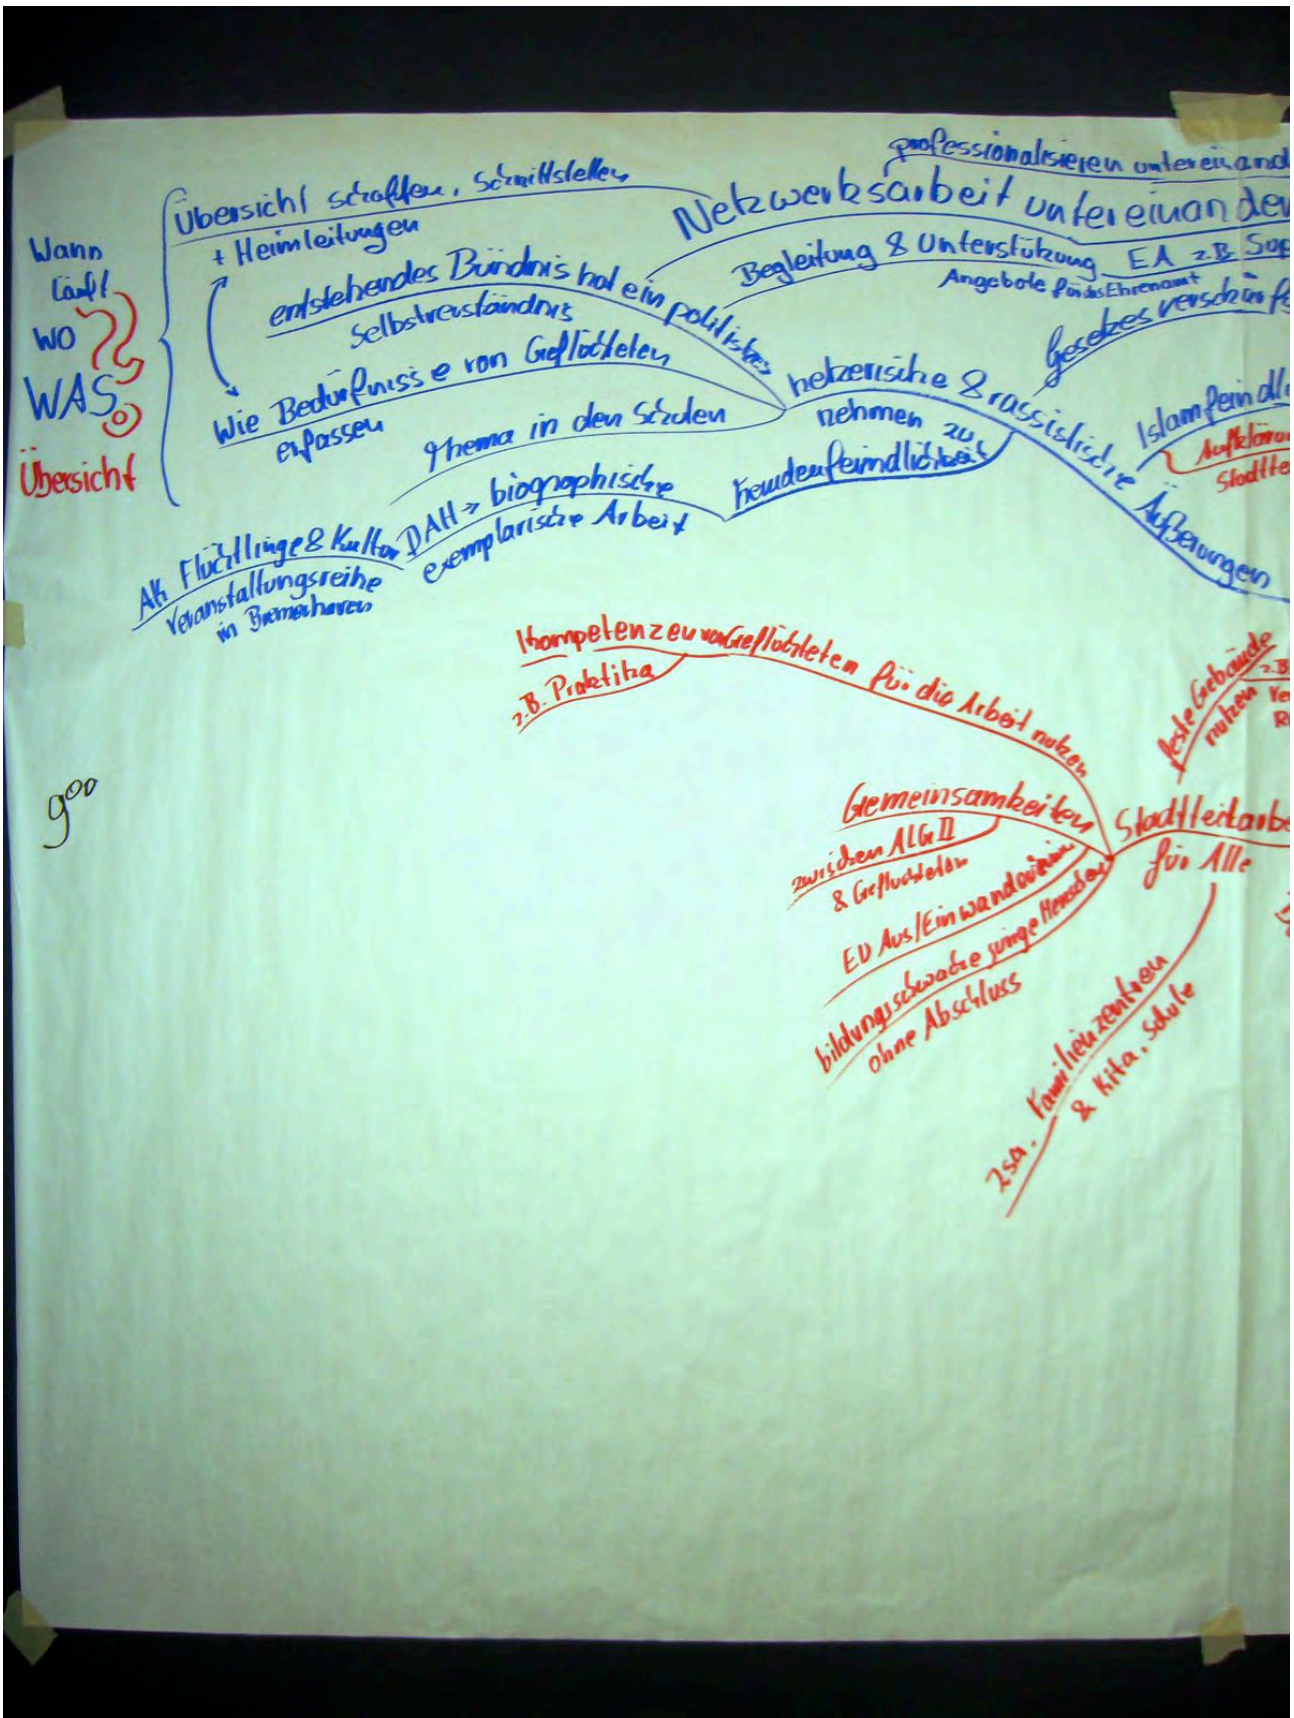 Wann
läuft
WO
WAS
Übersicht
Übersicht schaffen, Schnittstellen
+ Heimleitungen
entstehendes Bündnis hat ein politisches
Selbstverständnis
Wie Bedürfnisse von Geflüchteten
erfassen
Thema in den Schulen
DAH → biographische
exemplarische Arbeit
AK Flüchtlinge & Kultur
Veranstaltungsreihe
in Bremerhaven
professionalisieren untereinand
Netzwerksarbeit untereinander
Begleitung & Unterstützung EA z.B. Sup
Angebote für das Ehrenamt
Gesetzesverschärf
hetzerische & rassistische Äußerungen
nehmen zu
Fremdenfeindlichkeit
Islamfeindli
Aufkläru
Stadtte
Kompetenzen von Geflüchteten für die Arbeit nutzen
z.B. Praktika
feste Gebäude
nutzen
z.B.
Stadtteilarbe
für Alle
Gemeinsamkeiten
zwischen ALG II
& Geflüchteten
EU Aus/Einwanderern
bildungsschwache junge Menschen
ohne Abschluss
Zsa. Familienzentren
& Kita, Schule
9⁰⁰